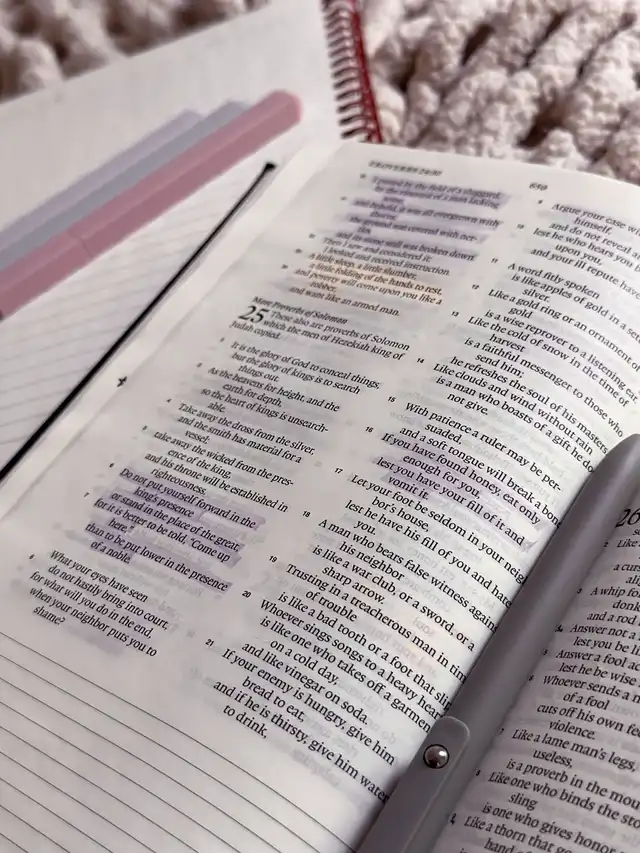 PROVERBS 24:30
I passed by the field of a sluggard,
by the vineyard of a man lacking
sense,
and behold, it was all overgrown with
thorns;
the ground was covered with net-
tles,
and its stone wall was broken down.
Then I saw and considered it;
I looked and received instruction.
A little sleep, a little slumber,
a little folding of the hands to rest,
and poverty will come upon you like a
robber,
and want like an armed man.
More Proverbs of Solomon
25 These also are proverbs of Solomon
which the men of Hezekiah king of
Judah copied.
It is the glory of God to conceal things,
but the glory of kings is to search
things out.
As the heavens for height, and the
earth for depth,
so the heart of kings is unsearch-
able.
4 Take away the dross from the silver,
and the smith has material for a
vessel;
5 take away the wicked from the pres-
ence of the king,
and his throne will be established in
righteousness.
6 Do not put yourself forward in the
king's presence
or stand in the place of the great,
7 for it is better to be told, "Come up
here,"
than to be put lower in the presence
of a noble.
8 What your eyes have seen
do not hastily bring into court,
for what will you do in the end,
when your neighbor puts you to
shame?
650
9 Argue your case wi
himself,
and do not reveal a
10 lest he who hears you
upon you,
and your ill repute hav
11 A word fitly spoken
is like apples of gold in a set
silver.
12 Like a gold ring or an ornament o
gold
is a wise reprover to a listening ear.
13 Like the cold of snow in the time of
harvest
is a faithful messenger to those who
send him;
he refreshes the soul of his masters.
14 Like clouds and wind without rain
is a man who boasts of a gift he do
not give.
15 With patience a ruler may be per-
suaded,
and a soft tongue will break a bon
16 If you have found honey, eat only
enough for you,
lest you have your fill of it and
vomit it.
17 Let your foot be seldom in your neigh
bor's house,
lest he have his fill of you and hate
you.
18 A man who bears false witness again
his neighbor
is like a war club, or a sword, or a
sharp arrow.
19 Trusting in a treacherous man in tim
of trouble
is like a bad tooth or a foot that slip
20 Whoever sings songs to a heavy hear
is like one who takes off a garment
on a cold day,
and like vinegar on soda.
21 If your enemy is hungry, give him
bread to eat,
and if he is thirsty, give him water
to drink,
26
Like
a curs
3 A whip fo
don
and a rod
4 Answer not a
lest you be li
5 Answer a fool a
lest he be wise
6 Whoever sends a
of a fool
cuts off his own fee
violence.
7 Like a lame man's legs,
useless,
is a proverb in the mou
8 Like one who binds the sto
sling
is one who gives honor
9 Like a thorn that go
hand